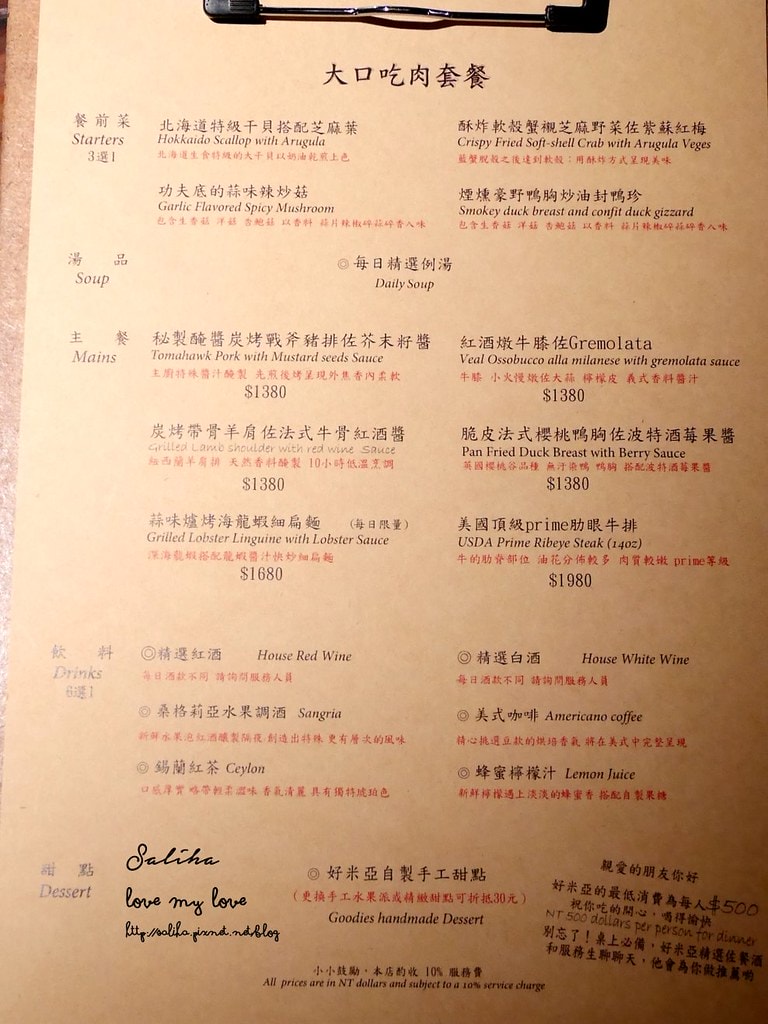 大口吃肉套餐
餐前菜
Starters
3選1
北海道特級干貝搭配芝麻葉
Hokkaido Scallop with Arugula
北海道生食特級的大干貝以奶油乾煎上色
酥炸軟殼蟹襯芝麻野菜佐紫蘇紅梅
Crispy Fried Soft-shell Crab with Arugula Veges
藍蟹脫殼之後達到軟殼；用酥炸方式呈現美味
功夫底的蒜味辣炒菇
Garlic Flavored Spicy Mushroom
包含生香菇 洋菇 杏鮑菇 以香料 蒜片辣椒碎蒜碎香入味
煙燻豪野鴨胸炒油封鴨珍
Smokey duck breast and confit duck gizzard
包含生香菇 洋菇 杏鮑菇 以香料 蒜片辣椒碎蒜碎香入味
湯品
Soup
◎每日精選例湯
Daily Soup
主餐
Mains
秘製醃醬炭烤戰斧豬排佐芥末籽醬
Tomahawk Pork with Mustard seeds Sauce
主廚特殊醬汁醃製 先煎後烤呈現外焦香內柔軟
$1380
紅酒燉牛膝佐Gremolata
Veal Ossobucco alla milanese with gremolata sauce
牛膝 小火慢燉佐大蒜 檸檬皮 義式香料醬汁
$1380
炭烤帶骨羊肩佐法式牛骨紅酒醬
Grilled Lamb shoulder with red wine Sauce
紐西蘭羊肩排 天然香料醃製 10小時低溫烹調
$1380
脆皮法式櫻桃鴨胸佐波特酒莓果醬
Pan Fried Duck Breast with Berry Sauce
英國櫻桃谷品種 無汙染鴨 鴨胸 搭配波特酒莓果醬
$1380
蒜味爐烤海龍蝦細扁麵 (每日限量)
Grilled Lobster Linguine with Lobster Sauce
深海龍蝦搭配龍蝦醬汁快炒細扁麵
$1680
美國頂級prime肋眼牛排
USDA Prime Ribeye Steak (14oz)
牛的肋脊部位 油花分佈較多 肉質較嫩 prime等級
$1980
飲料
Drinks
6選1
◎精選紅酒 House Red Wine
每日酒款不同 請詢問服務人員
◎ 精選白酒 House White Wine
每日酒款不同 請詢問服務人員
◎ 桑格莉亞水果調酒 Sangria
新鮮水果泡紅酒釀製隔夜 創造出特殊 更有層次的風味
◎ 美式咖啡 Americano coffee
精心挑選豆款的烘培香氣 將在美式中完整呈現
◎ 錫蘭紅茶 Ceylon
口感厚實 略帶輕柔澀味 香氣清麗 具有獨特琥珀色
◎ 蜂蜜檸檬汁 Lemon Juice
新鮮檸檬遇上淡淡的蜂蜜香 搭配自製果糖
甜點
Dessert
Saliha
love my love
http://saliha.pixnet.net/blog
◎ 好米亞自製手工甜點
(更換手工水果派或精緻甜點可折抵30元)
Goodies handmade Dessert
親愛的朋友你好
好米亞的最低消費為每人$500
祝你吃的開心，喝得愉快
NT 500 dollars per person for dinner
別忘了！桌上必備，好米亞精選佐餐酒
和服務生聊聊天，他會為你做推薦喲
小小鼓勵，本店酌收 10% 服務費
All prices are in NT dollars and subject to a 10% service charge